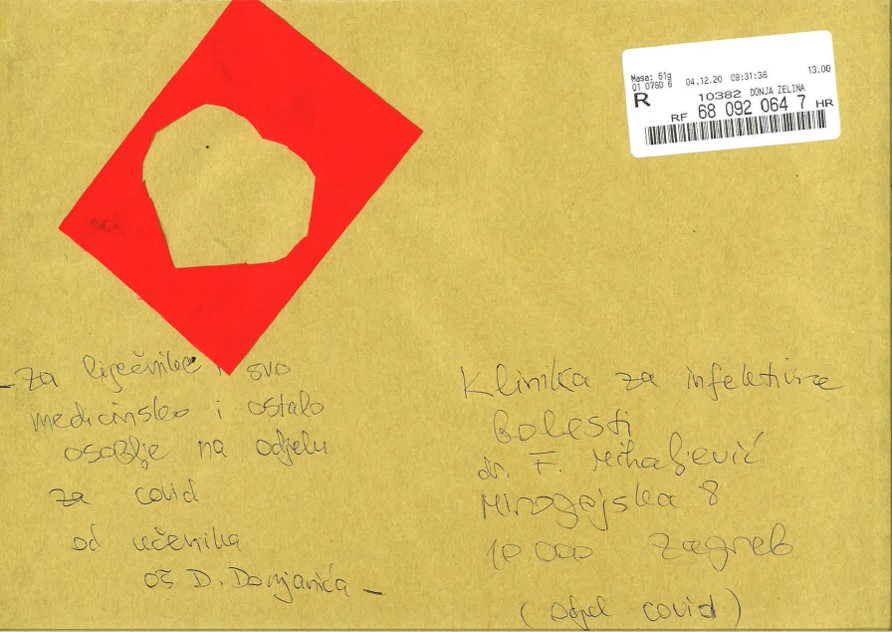 Masa: 61g 04.12.20 09:31:36 13.00
01 076D 6
R 10382 DONJA ZELINA
RF 68 092 064 7 HR
- Za liječnike i svo
medicinsko i ostalo
osoblje na odjelu
za covid
od učenika
OŠ D. Domjanića -
Klinika za infektivne
Bolesti
dr. F. Mihaljević
Mirogojska 8
10 000 Zagreb
(odjel covid)